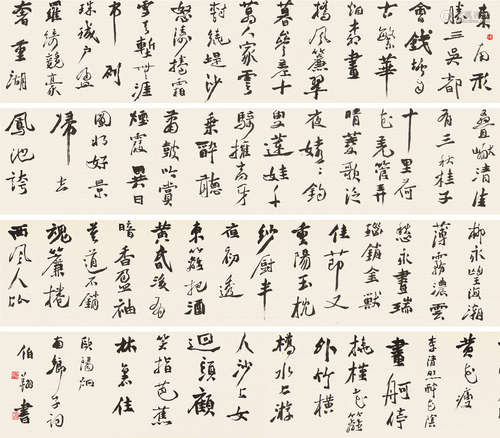 東南形
勝三吳都
會錢塘自
古繁華
烟柳畫
橋風簾翠
幕參差十
萬人家雲
樹繞堤沙
怒濤捲霜
雪天塹無涯
市列
珠璣戶盈
羅綺競豪
奢重湖
疊巘清佳
有三秋桂子
十里荷
花羌管弄
晴菱歌泛
夜嬉嬉釣
叟蓮娃千
騎擁高牙
乘醉聽
簫鼓吟賞
煙霞異日
圖將好景
歸去
鳳池誇
柳永望海潮
薄霧濃雲
愁永晝瑞
腦銷金獸
佳節又
重陽玉枕
紗廚半
夜初透
東籬把酒
黃昏後有
暗香盈袖
莫道不銷
魂簾捲
西風人比
黃花瘦
李清照醉花陰
畫舸停
橈槿花籬
外竹橫
橋水上游
人沙上女
迴頭顧
笑指芭蕉
林裏住
歐陽炯
南鄉子詞
伯翔書